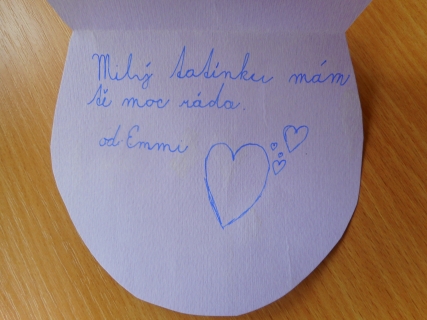 Milý tatínku mám
tě moc ráda.
od Emmi